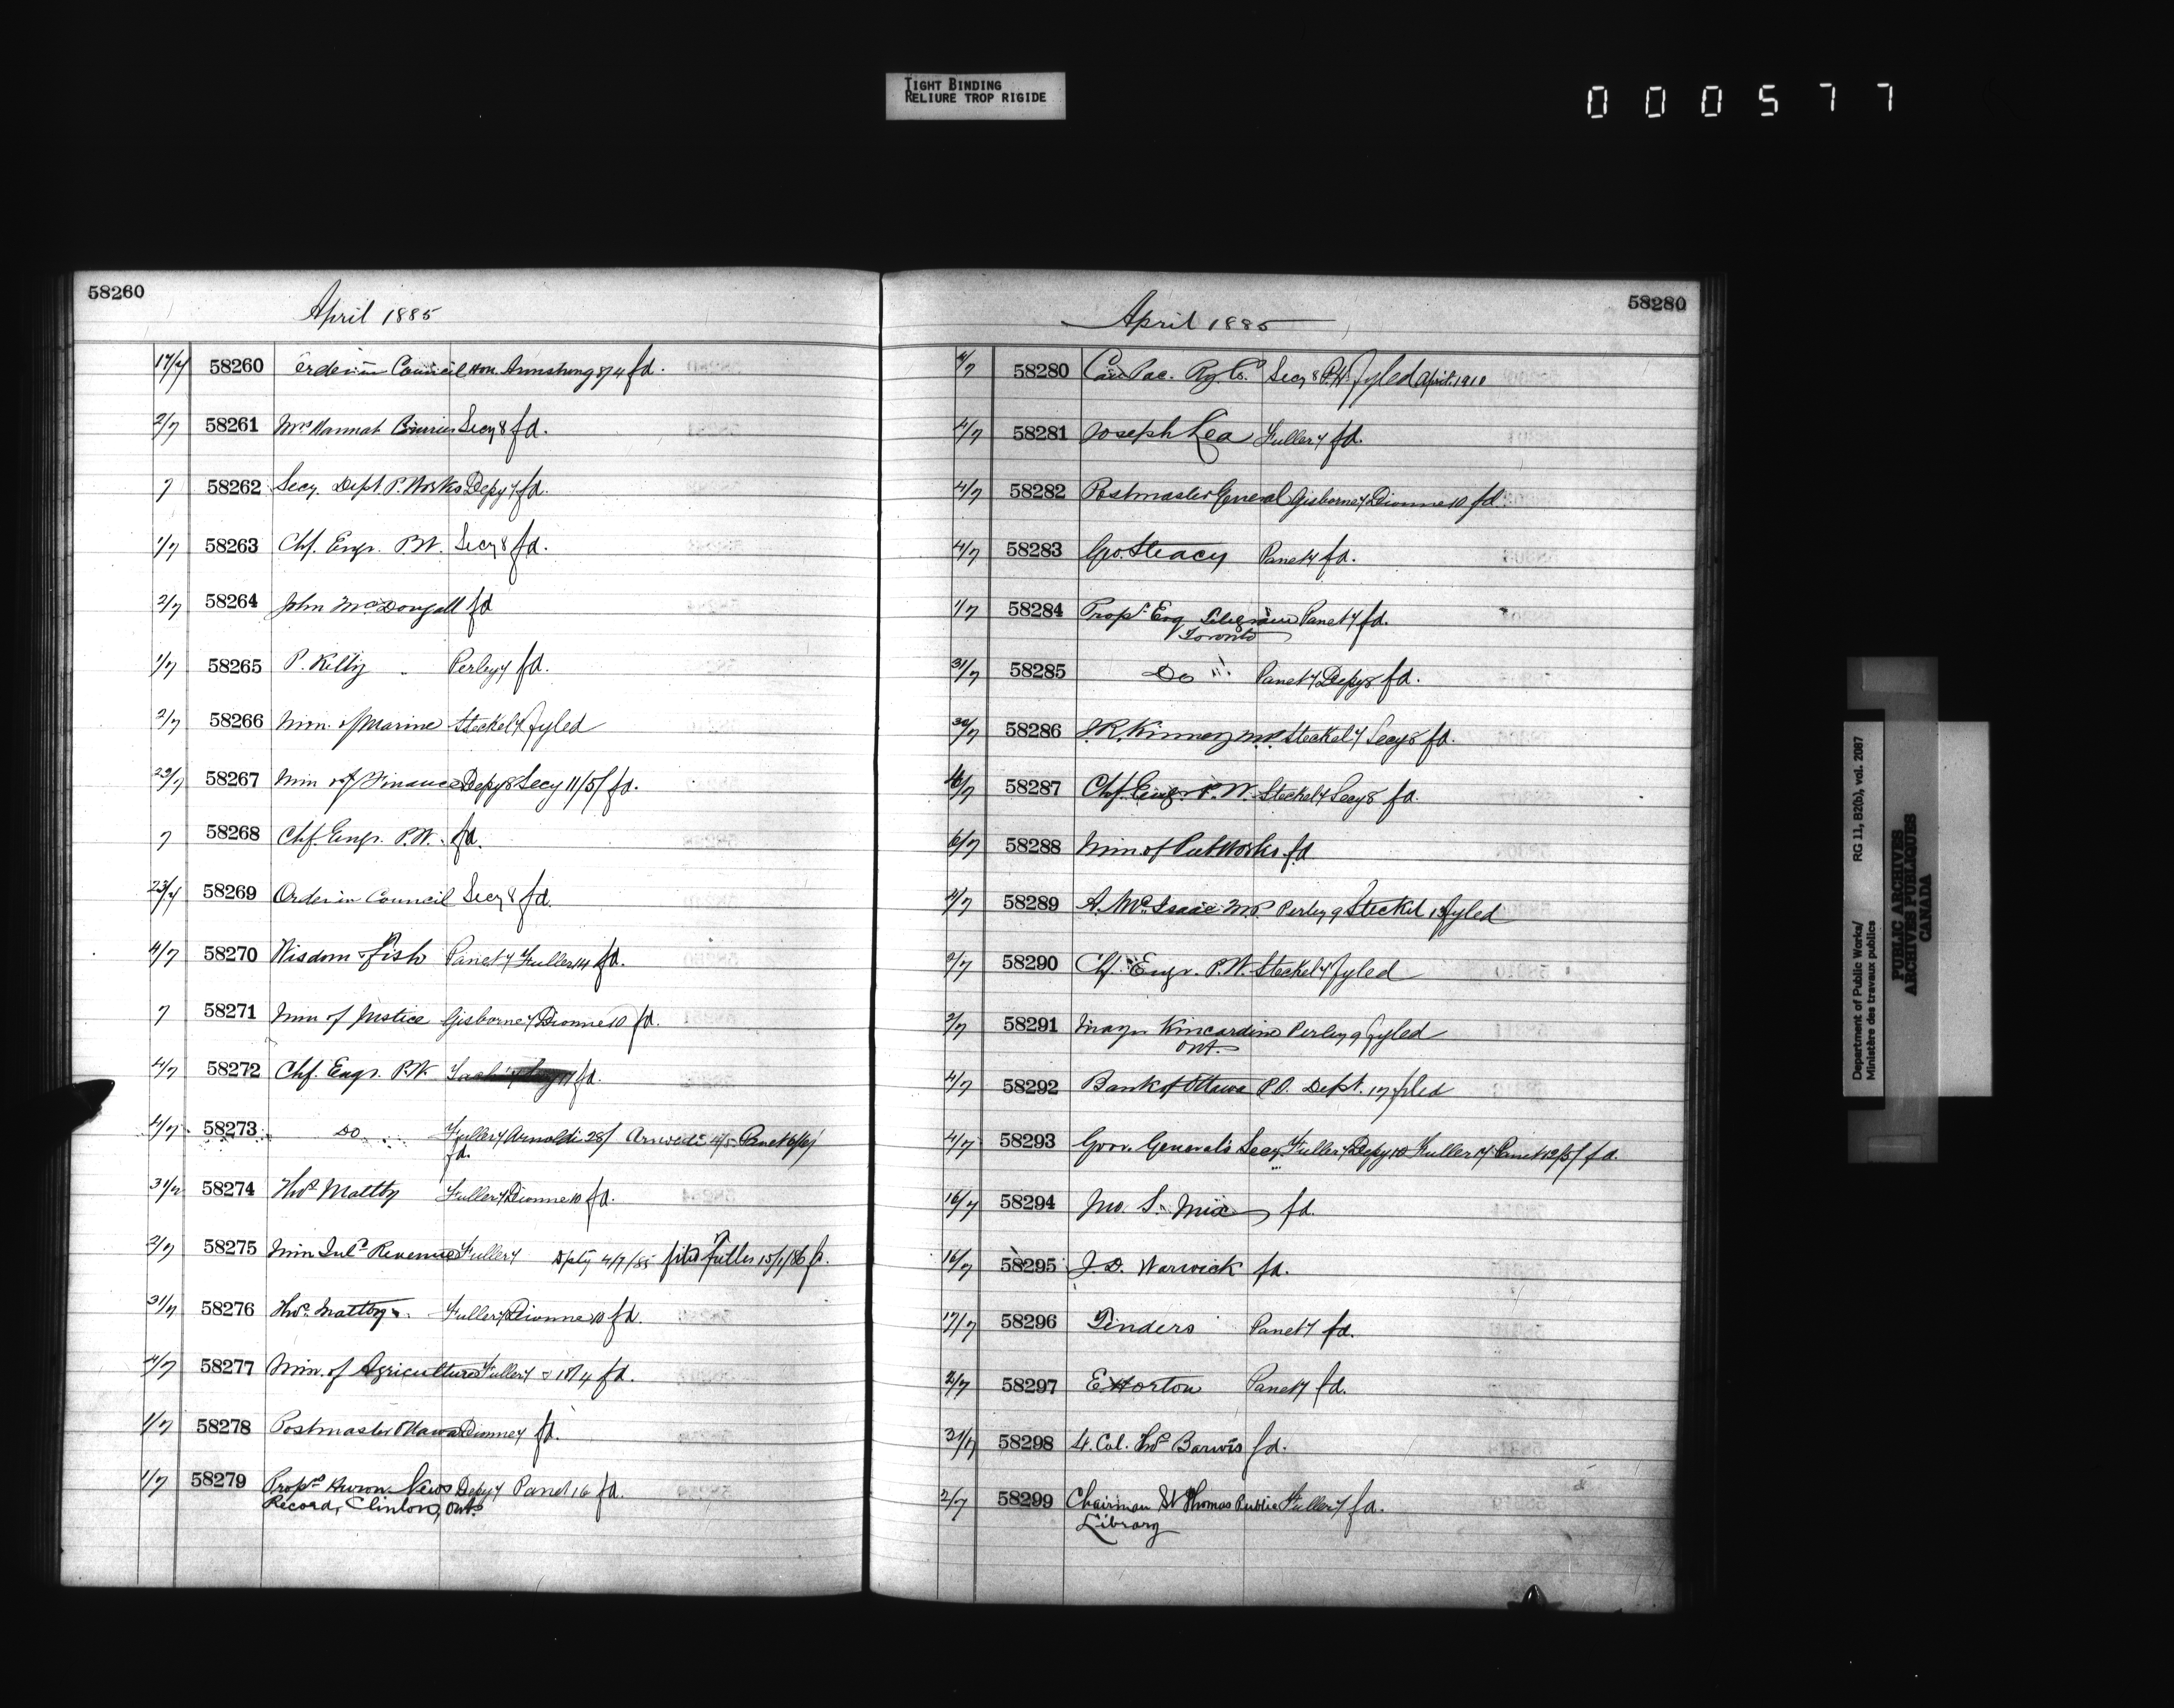 TIGHT BINDING
RELIURE TROP RIGIDE
000577
58260
April 1885
17/7 58260 Order in Council Hon. Armstrong 8/4 fd.
2/7 58261 Mrs Hannah Secy 8 fd.
7 58262 Secy. Dept. P. Works Depy 7 fd.
1/7 58263 Chf. Engr. P.W. Secy 8 fd.
2/7 58264 John McDougall fd
1/7 58265 P. Kilty Perley 7 fd.
2/7 58266 Min. of Marine Steckel 7 fyled
23/7 58267 Min of Finance Depy 8 Secy 11/5/ fd.
7 58268 Chf. Engr. P.W. fd.
23/7 58269 Order in Council Secy 8 fd.
4/7 58270 Wisdom & Fish Panet 7 Fuller 14 fd.
7 58271 Min of Justice Gisborne 7 Dionne 10 fd.
4/7 58272 Chf. Engr. P.W. fd.
4/7 58273 Do Fuller 7 Arnoldi 28/ Arnoldi 4/5 Panet 6/6/
fd.
31/7 58274 Thos Maltby Fuller 7 Dionne 10 fd.
2/7 58275 Min Inld Revenue Fuller 7 Dpty 4/7/85 filed Fuller 15/1/86 f.
31/7 58276 Thos Maltby Fuller 7 Dionne 10 fd.
4/7 58277 Min. of Agriculture Fuller 7 18/4 fd.
1/7 58278 Postmaster Ottawa Dionne 7 fd.
1/7 58279 Propr Huron News Depy 7 Panet 16 fd.
Record, Clinton, Ont.
58280
April 1885
4/7 58280 Can Pac. Ry. Co. Secy 8 P.W. fyled April 1910
4/7 58281 Joseph Lea Fuller 7 fd.
4/7 58282 Postmaster General Gisborne 7 Dionne 10 fd.
4/7 58283 Geo. Steacy Panet 7 fd.
1/7 58284 Propr Eng Telegram Panet 7 fd.
Toronto
31/7 58285 Do " Panet 7 Depy 8 fd.
30/7 58286 J.R. Kinney M.P. Steckel 7 Secy 8 fd.
58287 Chf. Engr. P.W. Steckel 7 Secy 8 fd.
6/7 58288 Min of Pub Works fd
4/7 58289 A. McIsaac M.P. Perley 9 Steckel 13 fyled
2/7 58290 Chf. Engr. P.W. Steckel 7 fyled
2/7 58291 Mayor Kincardine Perley 9 fyled
Ont.
4/7 58292 Bank of Ottawa P.O. Dept. 17 filed
4/7 58293 Gov. General's Secy Fuller 7 Depy 10 Fuller 17 Panet 12/5/ fd.
16/7 58294 Jno. S. Mix fd.
16/7 58295 J.D. Warwick fd.
17/7 58296 Tenders Panet 7 fd.
2/7 58297 E Horton Panet 7 fd.
31/7 58298 Lt. Col. Thos Barwis fd.
2/7 58299 Chairman St Thomas Public Fuller 7 fd.
Library
Department of Public Works/ RG 11, B2(b), vol. 2087
Ministère des travaux publics
PUBLIC ARCHIVES
ARCHIVES PUBLIQUES
CANADA